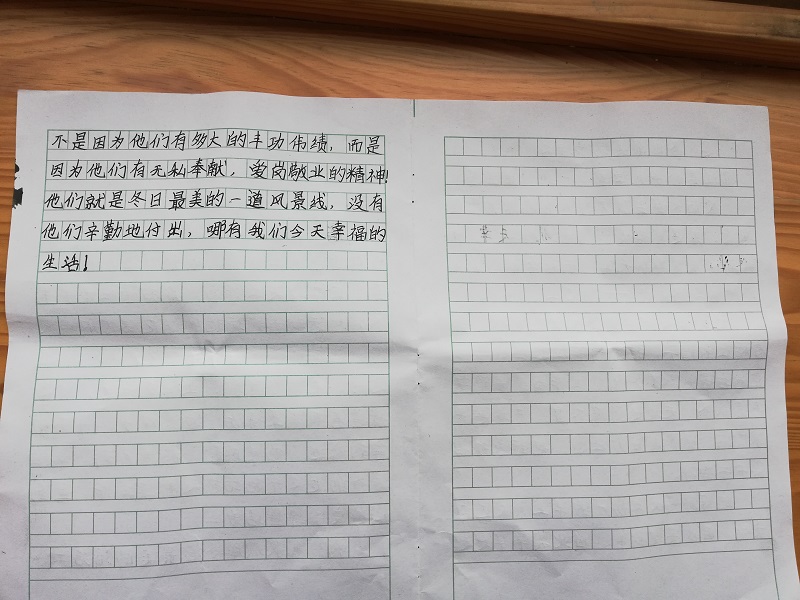 不是因为他们有多大的丰功伟绩，而是
因为他们有无私奉献，爱岗敬业的精神！
他们就是冬日最美的一道风景线，没有
他们辛勤地付出，哪有我们今天幸福的
生活！